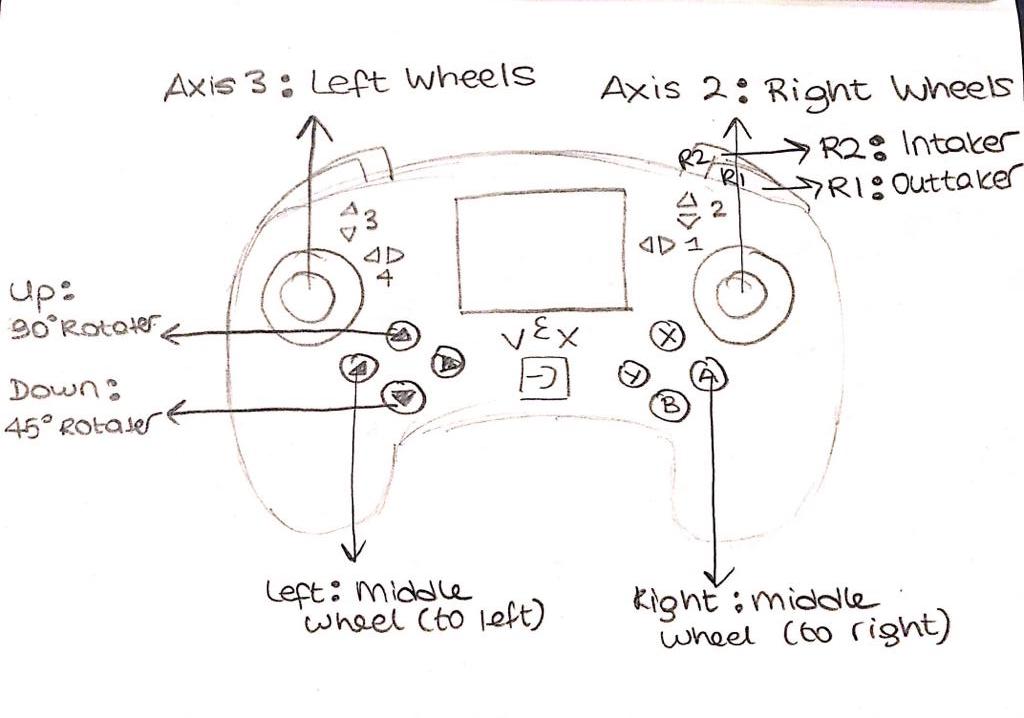 Axis 3: Left Wheels
Axis 2: Right Wheels
R2
R2: Intaker
R1
R1: Outtaker
3
2
4
1
Up:
90° Rotater
VEX
X
Y
A
B
Down:
45° Rotater
Left: Middle
wheel (to left)
Right: middle
wheel (to right)